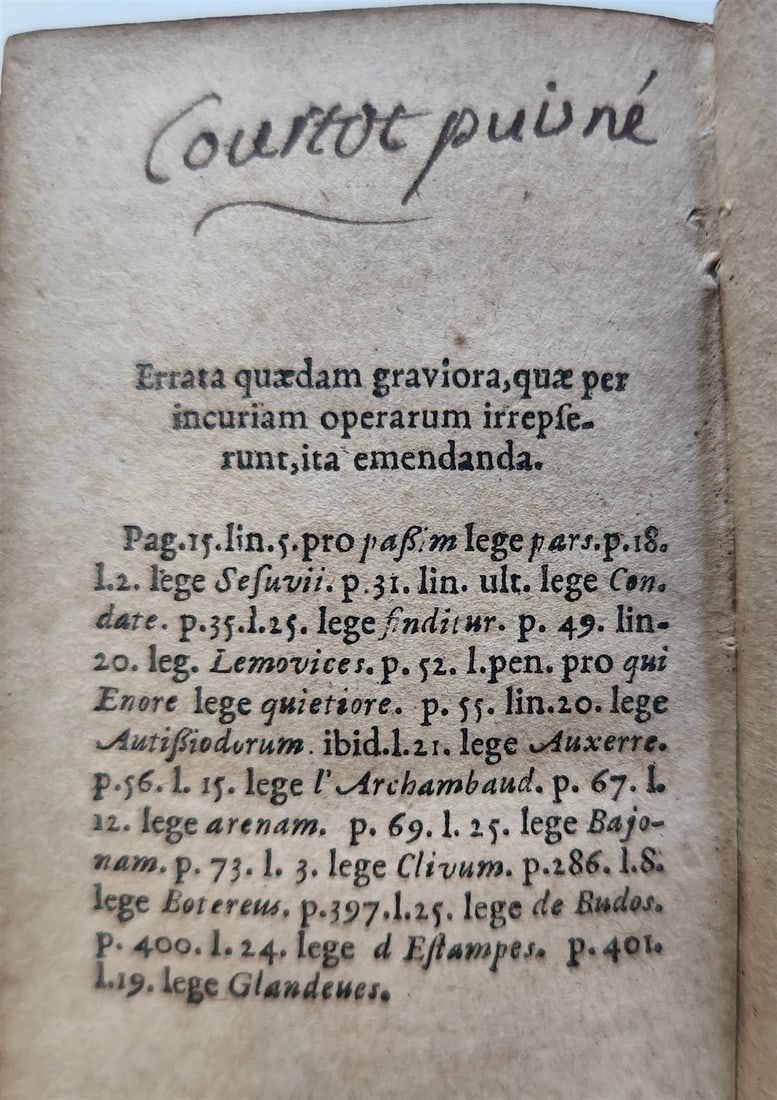 Courtot puisné
Errata quædam graviora,quæ per
incuriam operarum irrepſe-
runt,ita emendanda.
Pag.15.lin.5.pro paßim lege pars.p.18.
l.2. lege Seſuvii. p.31. lin. ult. lege Con-
date. p.35.l.25. lege finditur. p. 49. lin-
20. leg. Lemovices. p. 52. l.pen. pro qui
Enore lege quietiore. p. 55. lin.20. lege
Autißiodorum. ibid.l.21. lege Auxerre.
p.56.l. 15. lege l'Archambaud. p. 67. l.
12. lege arenam. p. 69. l. 25. lege Bajo-
nam. p. 73. l. 3. lege Clivum. p.286. l.8.
lege Botereus. p.397.l.25. lege de Budos.
p. 400. l. 24. lege d Eſtampes. p. 401.
l.19. lege Glandeues.